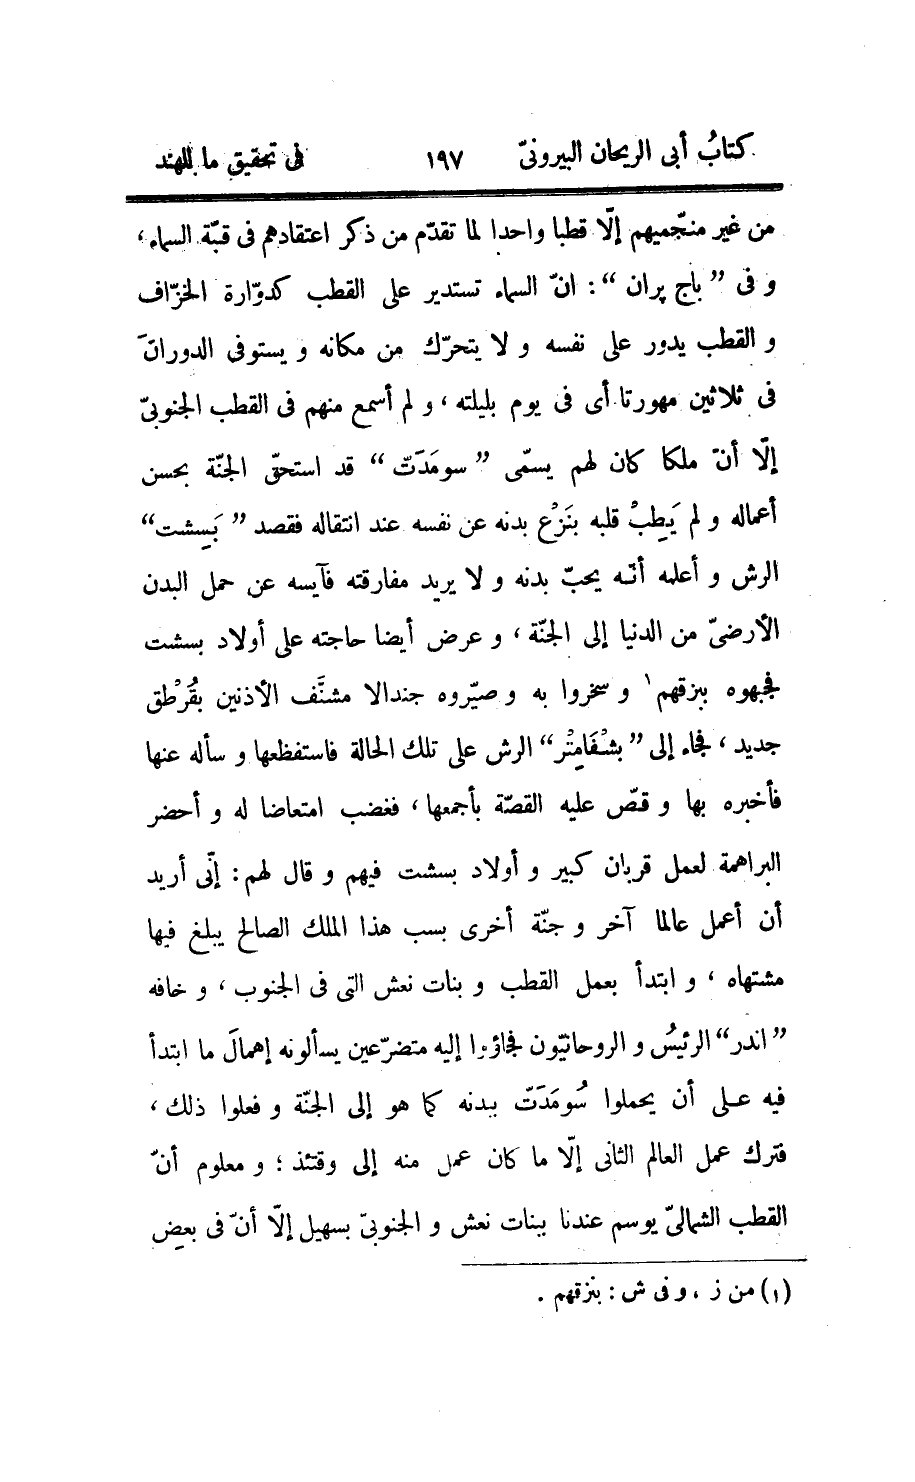 كتابُ أبى الريحان البيرونىّ ١٩٧ فى تحقيق ما للهند
من غير منجّميهم إلّا قطبا واحدا لما تقدّم من ذكر اعتقادهم فى قبّة السماء،
و فى ”باج پران“: انّ السماء تستدير على القطب كدوّارة الخزّاف
و القطب يدور على نفسه و لا يتحرّك من مكانه و يستوفى الدورانَ
فى ثلاثين مهورتا أى فى يوم بليلته، و لم أسمع منهم فى القطب الجنوبىّ
إلّا أنّ ملكا كان لهم يسمّى ”سومَدَتّ“ قد استحقّ الجنّة بحسن
أعماله و لم يَطِبْ قلبه بنَزْع بدنه عن نفسه عند انتقاله فقصد ”بَسِشت“
الرش و أعلمه أنّه يحبّ بدنه و لا يريد مفارقته فآيسه عن حمل البدن
الأرضىّ من الدنيا إلى الجنّة، و عرض أيضا حاجته على أولاد بسشت
فجبهوه ببزقهم١ و سخروا به و صيّروه جندالا مشنَّف الأذنين بقُرْطق
جديد، فجاء إلى ”بشْفَامِتْر“ الرش على تلك الحالة فاستفظعها و سأله عنها
فأخبره بها و قصّ عليه القصّة بأجمعها، فغضب امتعاضا له و أحضر
البراهمة لعمل قربان كبير و أولاد بسشت فيهم و قال لهم: إنّى أريد
أن أعمل عالما آخر و جنّة أخرى بسبب هذا الملك الصالح يبلغ فيها
مشتهاه، و ابتدأ بعمل القطب و بنات نعش التى فى الجنوب، و خافه
”اندر“ الرئيسُ و الروحانيّون فجاؤءا إليه متضرّعين يسألونه إهمالَ ما ابتدأ
فيه على أن يحملوا سُومَدَتّ ببدنه كما هو إلى الجنّة و فعلوا ذلك،
فترك عمل العالم الثانى إلّا ما كان عمل منه إلى وقتئذ؛ و معلوم أنّ
القطب الشمالىّ يوسم عندنا ببنات نعش و الجنوبىّ بسهيل إلّا أنّ فى بعض
(١) من ز، و فى ش: بنزقهم.